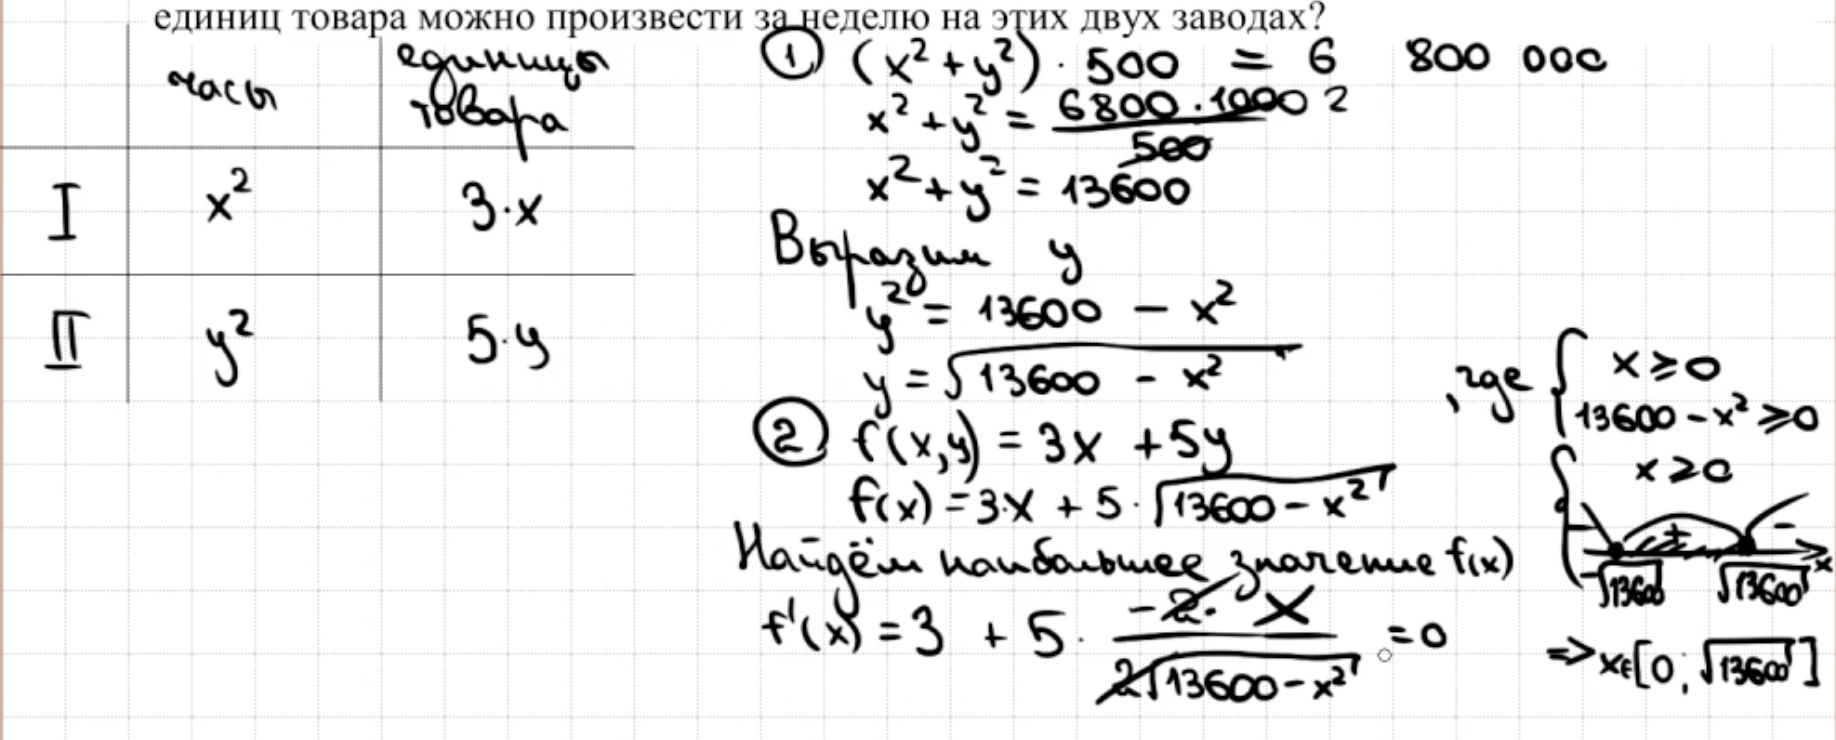 единиц товара можно произвести за неделю на этих двух заводах?
часы единицы товара
I x² 3·x
II y² 5·y
① (x² + y²) · 500 = 6 800 000
x² + y² = 6800 · 1000 2 / 500
x² + y² = 13600
Выразим y
y² = 13600 − x²
y = √(13600 − x²) , где { x ≥ 0
13600 − x² ≥ 0
② f(x,y) = 3x + 5y
{ x ≥ 0
f(x) = 3·x + 5 · √(13600 − x²)
− + −
−√13600 √13600 x
Найдём наибольшее значение f(x)
f'(x) = 3 + 5 · −2 · x / 2√(13600 − x²) = 0
=> x∈[0; √13600]